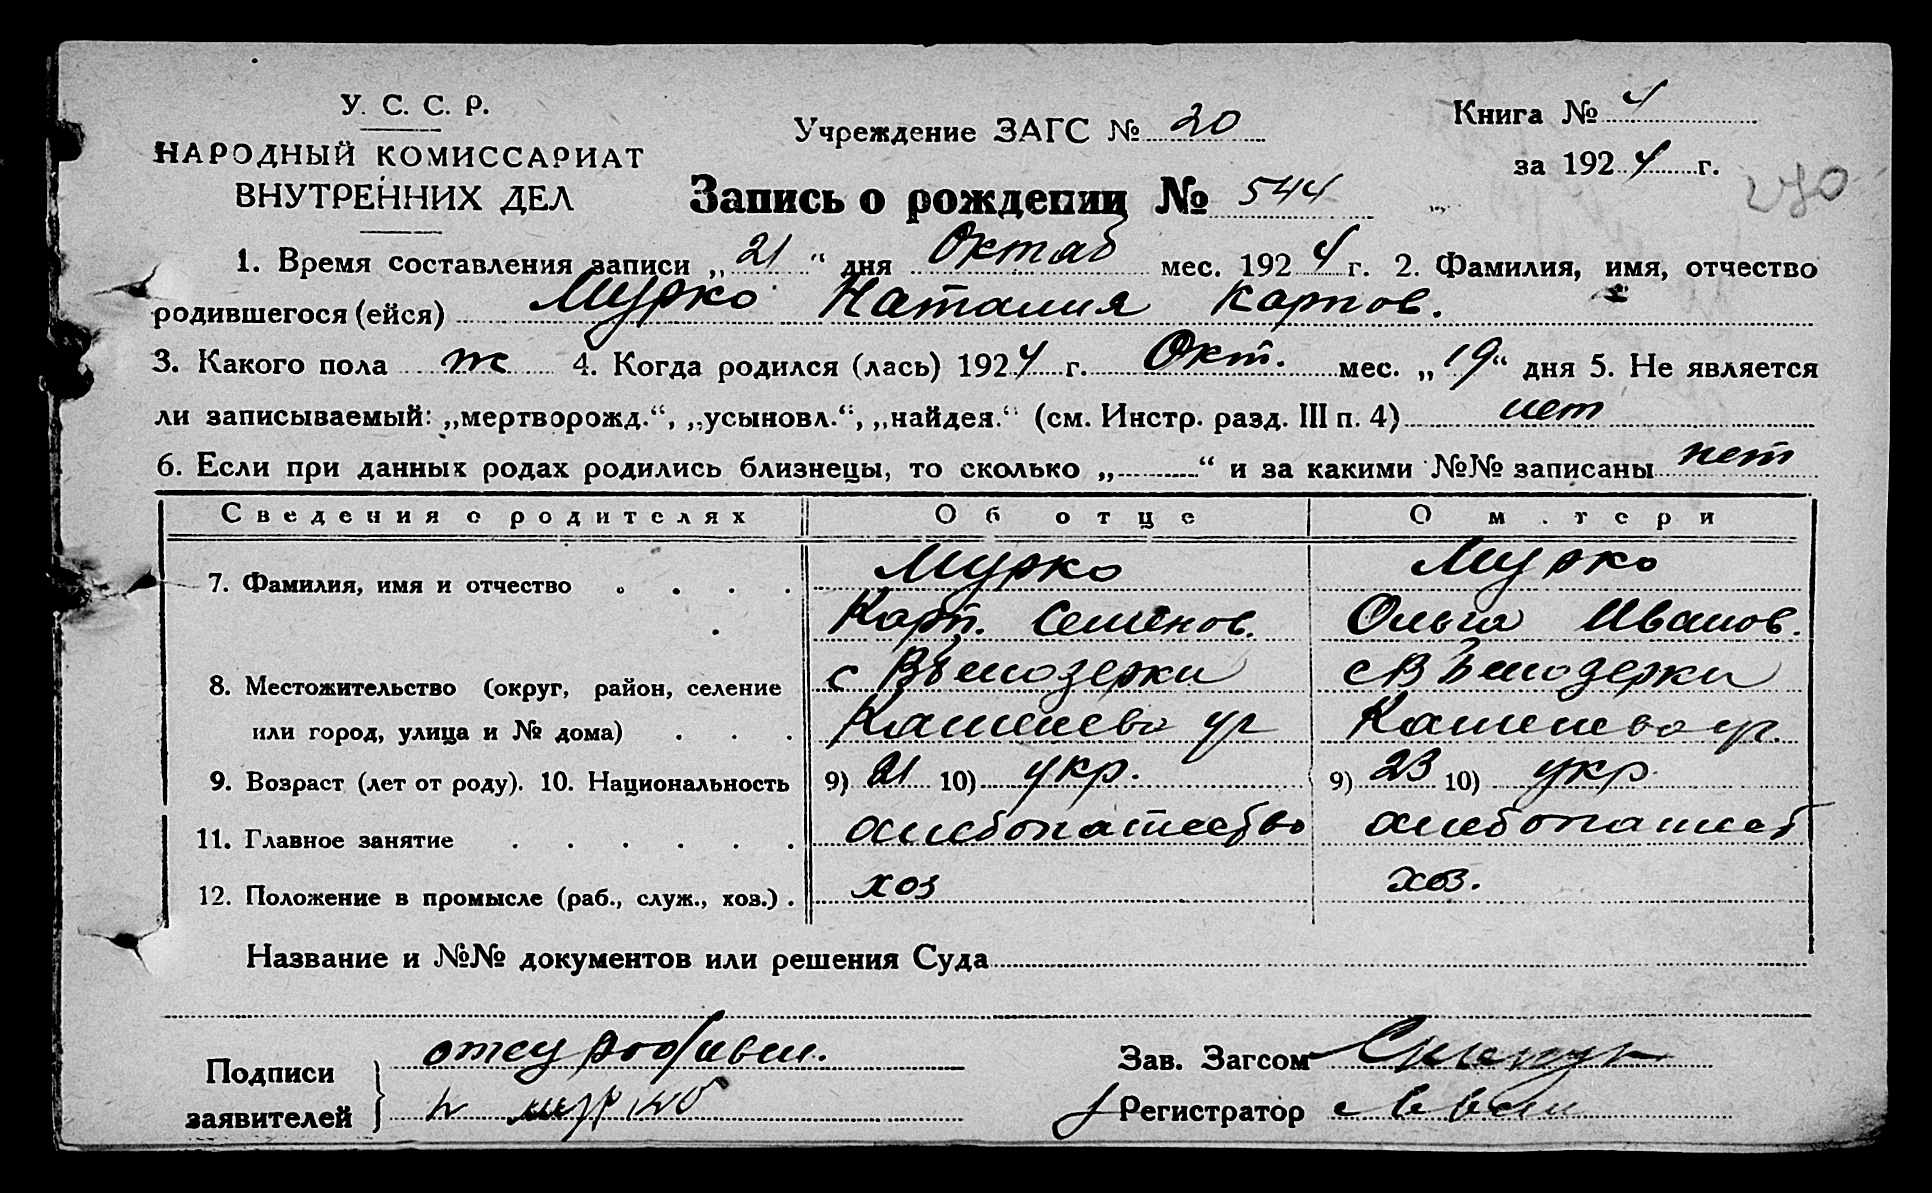 У. С. С. Р.
НАРОДНЫЙ КОМИССАРИАТ
ВНУТРЕННИХ ДЕЛ
Учреждение ЗАГС № 20
Книга № 4
за 1924 г.
Запись о рождении № 544
1. Время составления записи „21“ дня Октяб мес. 1924 г. 2. Фамилия, имя, отчество
родившегося (ейся) Мурко Наталия Карпов.
3. Какого пола ж 4. Когда родился (лась) 1924 г. Окт. мес. „19“ дня 5. Не является
ли записываемый: „мертворожд.“, „усыновл.“, „найден.“ (см. Инстр. разд. III п. 4) нет
6. Если при данных родах родились близнецы, то сколько „ “ и за какими №№ записаны нет
Сведения о родителях Об отце О матери
7. Фамилия, имя и отчество Мурко Мурко
Карп. Семенов. Ольга Иванов.
8. Местожительство (округ, район, селение с Белозерки с Белозерки
или город, улица и № дома)
9. Возраст (лет от роду). 10. Национальность 9) 21 10) укр. 9) 23 10) укр.
11. Главное занятие хлебопашество хлебопашеств
12. Положение в промысле (раб., служ., хоз.) хоз хоз.
Название и №№ документов или решения Суда
Подписи
заявителей
Зав. Загсом
Регистратор